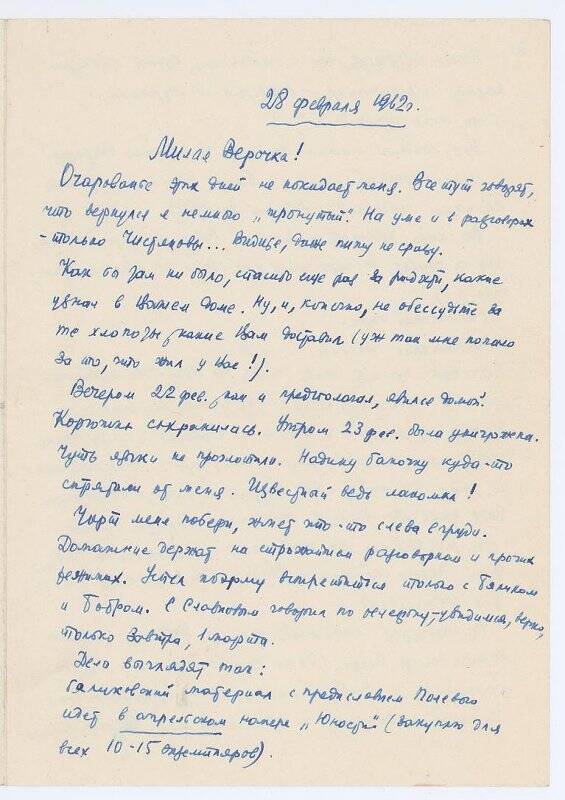 28 февраля 1962 г.
Милая Верочка!
Очарованье этих дней не покидает меня. Все тут говорят,
что вернулся я немного „тронутый“. На уме и в разговорах
- только Чистяковы... Видите, даже пишу не сразу.
Как бы там ни было, спасибо еще раз за радости, какие
узнал в Вашем доме. Ну, и, конечно, не обессудьте за
те хлопоты, какие Вам доставил (уж так мне попало
за то, что жил у Вас!).
Вечером 22 фев., как и предполагал, явился домой.
сохранилась. Утром 23 фев. была уничтожена.
Чуть языки не проглотили. Надину баночку куда-то
спрятали от меня. Известный ведь лакомка!
Чорт меня побери, жмет что-то слева в груди.
Домашние держат на строжайшем разговорном и прочих
режимах. Успел поэтому встретиться только с
и Бобром. С Славковым говорил по телефону, - увидимся, верно,
только завтра, 1 марта.
Дела выглядят так:
Галиковский материал с предисловием Полевого
идет в апрельском номере „Юности“ (закуплю для
всех 10-15 экземпляров).